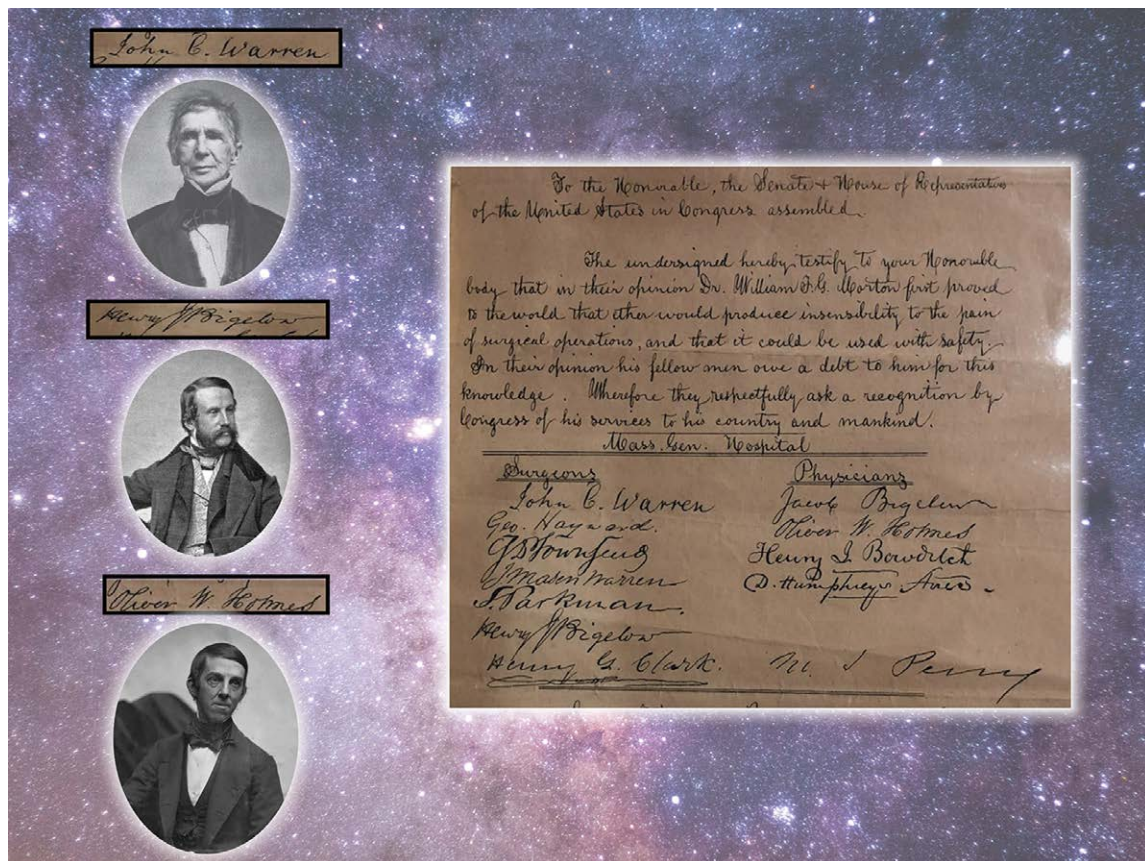 John C. Warren
Henry J Bigelow
Oliver W. Holmes
To the Honorable, the Senate & House of Representatives
of the United States in Congress assembled.
The undersigned hereby testify to your Honorable
body that in their opinion Dr. William T.G. Morton first proved
to the world that ether would produce insensibility to the pain
of surgical operations, and that it could be used with safety.
In their opinion his fellow men owe a debt to him for this
knowledge. Wherefore they respectfully ask a recognition by
Congress of his services to his country and mankind.
Mass. Gen. Hospital
Surgeons
Physicians
John C. Warren
Jacob Bigelow
Geo. Hayward.
Oliver W. Holmes
Townsend
Henry I. Bowditch
J Mason Warren
D. Humphreys
S. Parkman.
Henry J Bigelow
Henry G. Clark.